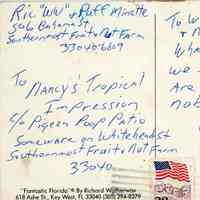 Ric "WW" & Puff Minette
506 Bahama St
Southernmost Fruit & Nut Farm
33040-6809
To Nancy's Tropical
Impression
c/o Pigeon Poop Patio
Someware on Whitehead St
Southernmost Fruit & Nut Farm
33040
To W
Wha
we
Are
nob
"Fantastic Florida" © By Richard Watherwax
618 Ashe St., Key West, FL 33040 (305)